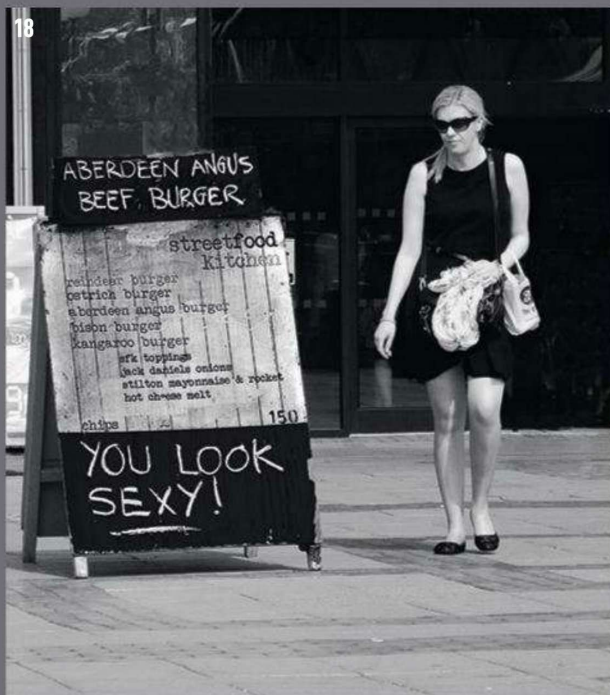 18
ABERDEEN ANGUS
BEEF BURGER
streetfood
kitchen
reindeer burger
ostrich burger
aberdeen angus burger
bison burger
kangaroo burger
sfk toppings
jack daniels onions
stilton mayonnaise & rocket
hot cheese melt
chips 150
YOU LOOK
SEXY!